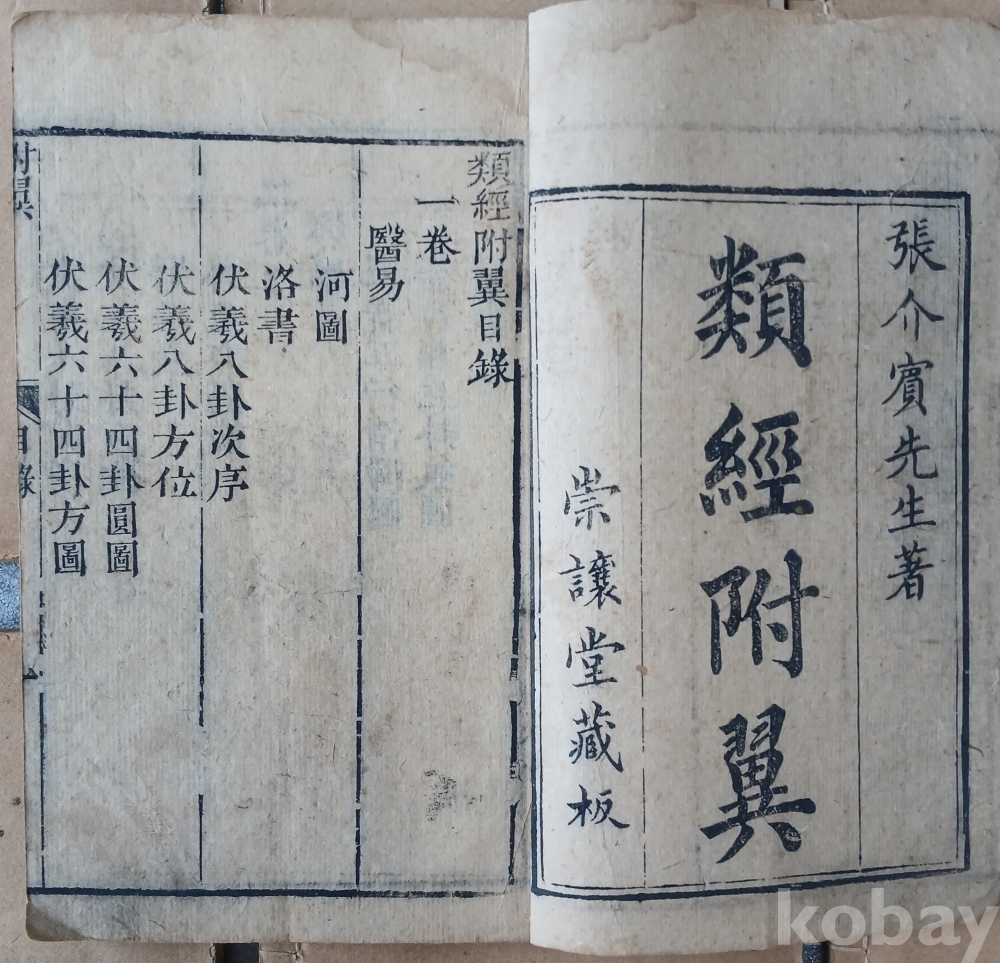 張介賓先生著
類經附翼
崇讓堂藏板
類經附翼目錄
一卷
醫易
河圖
洛書
伏羲八卦次序
伏羲八卦方位
伏羲六十四卦圓圖
伏羲六十四卦方圖
附翼
目錄
kobay